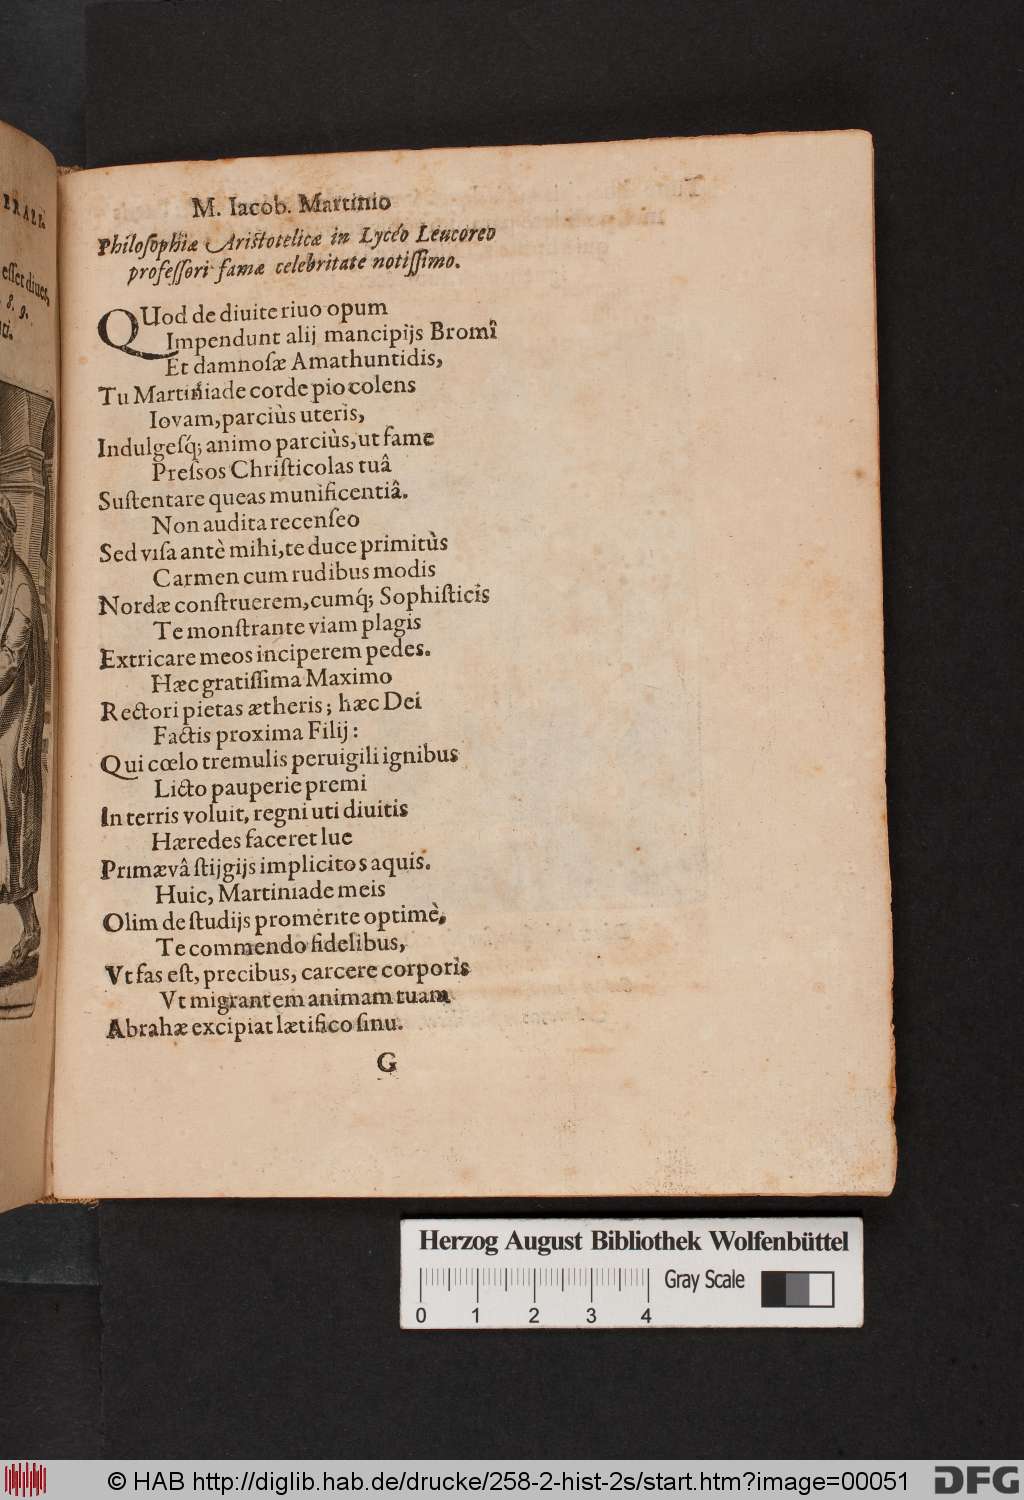 ERALI.
esset diues,
8. 9.
ti.
M. Iacob. Martinio
Philosophiæ Aristotelicæ in Lycéo Leucoreo
professori famæ celebritate notissimo.
QUod de diuite riuo opum
Impendunt alij mancipijs Bromî
Et damnosæ Amathuntidis,
Tu Martiniade corde pio colens
Iovam, parciùs uteris,
Indulgesq́; animo parciùs, ut fame
Pressos Christicolas tuâ
Sustentare queas munificentiâ.
Non audita recenseo
Sed visa antè mihi, te duce primitùs
Carmen cum rudibus modis
Nordæ construerem, cumq́; Sophisticis
Te monstrante viam plagis
Extricare meos inciperem pedes.
Hæc gratissima Maximo
Rectori pietas ætheris; hæc Dei
Factis proxima Filij:
Qui cœlo tremulis peruigili ignibus
Licto pauperie premi
In terris voluit, regni uti diuitis
Hæredes faceret lue
Primævâ stijgijs implicitos aquis.
Huic, Martiniade meis
Olim de studijs promerite optimè,
Te commendo fidelibus,
Vt fas est, precibus, carcere corporis
Vt migrantem animam tuam
Abrahæ excipiat lætifico sinu.
G
Herzog August Bibliothek Wolfenbüttel
Gray Scale
0 1 2 3 4
© HAB http://diglib.hab.de/drucke/258-2-hist-2s/start.htm?image=00051
DFG